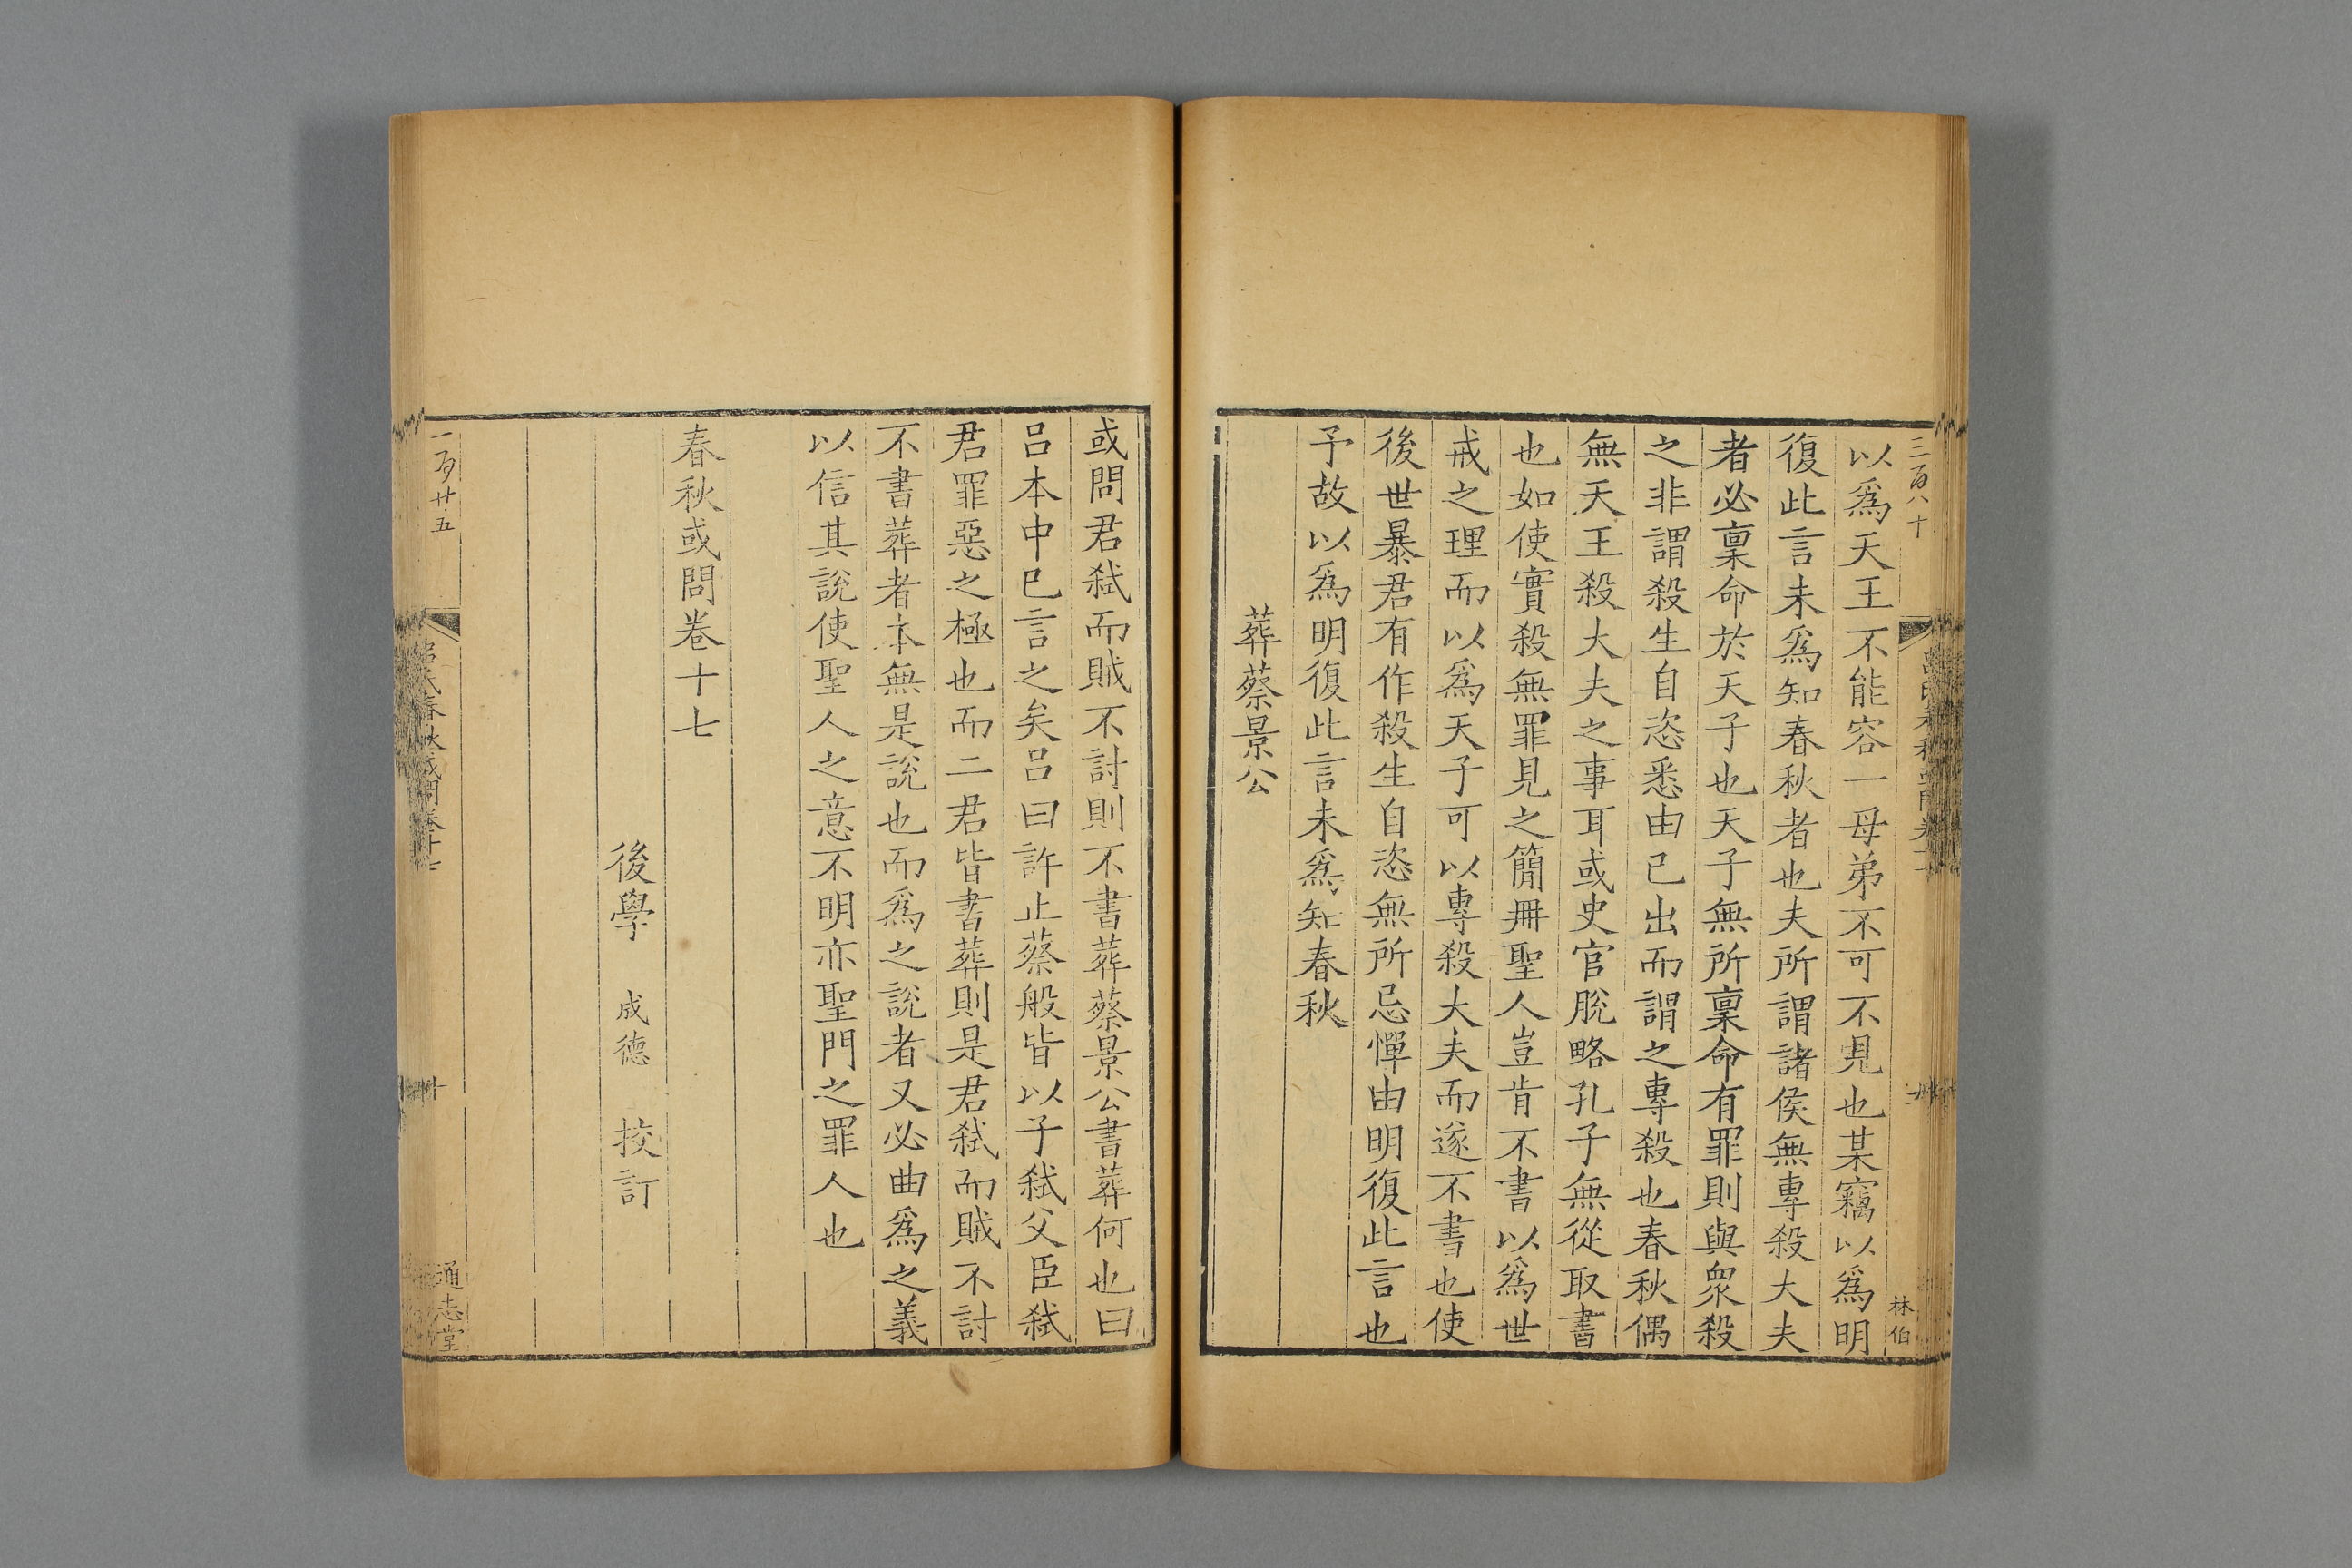 三百八十
林伯
以爲天王不能容一母弟不可不見也某竊以爲明
復此言未爲知春秋者也夫所謂諸侯無專殺大夫
者必稟命於天子也天子無所稟命有罪則與衆殺
之非謂殺生自恣悉由己出而謂之專殺也春秋偶
無天王殺大夫之事耳或史官脫略孔子無從取書
也如使實殺無罪見之簡冊聖人豈肯不書以爲世
戒之理而以爲天子可以專殺大夫而遂不書也使
後世暴君有作殺生自恣無所忌憚由明復此言也
予故以爲明復此言未爲知春秋
葬蔡景公
或問君弑而賊不討則不書葬蔡景公書葬何也曰
呂本中已言之矣呂曰許止蔡般皆以子弑父臣弑
君罪惡之極也而二君皆書葬則是君弑而賊不討
不書葬者本無是說也而爲之說者又必曲爲之義
以信其說使聖人之意不明亦聖門之罪人也
春秋或問卷十七
後學 成德 挍訂
一百廿五
呂氏春秋或問卷十七
通志堂